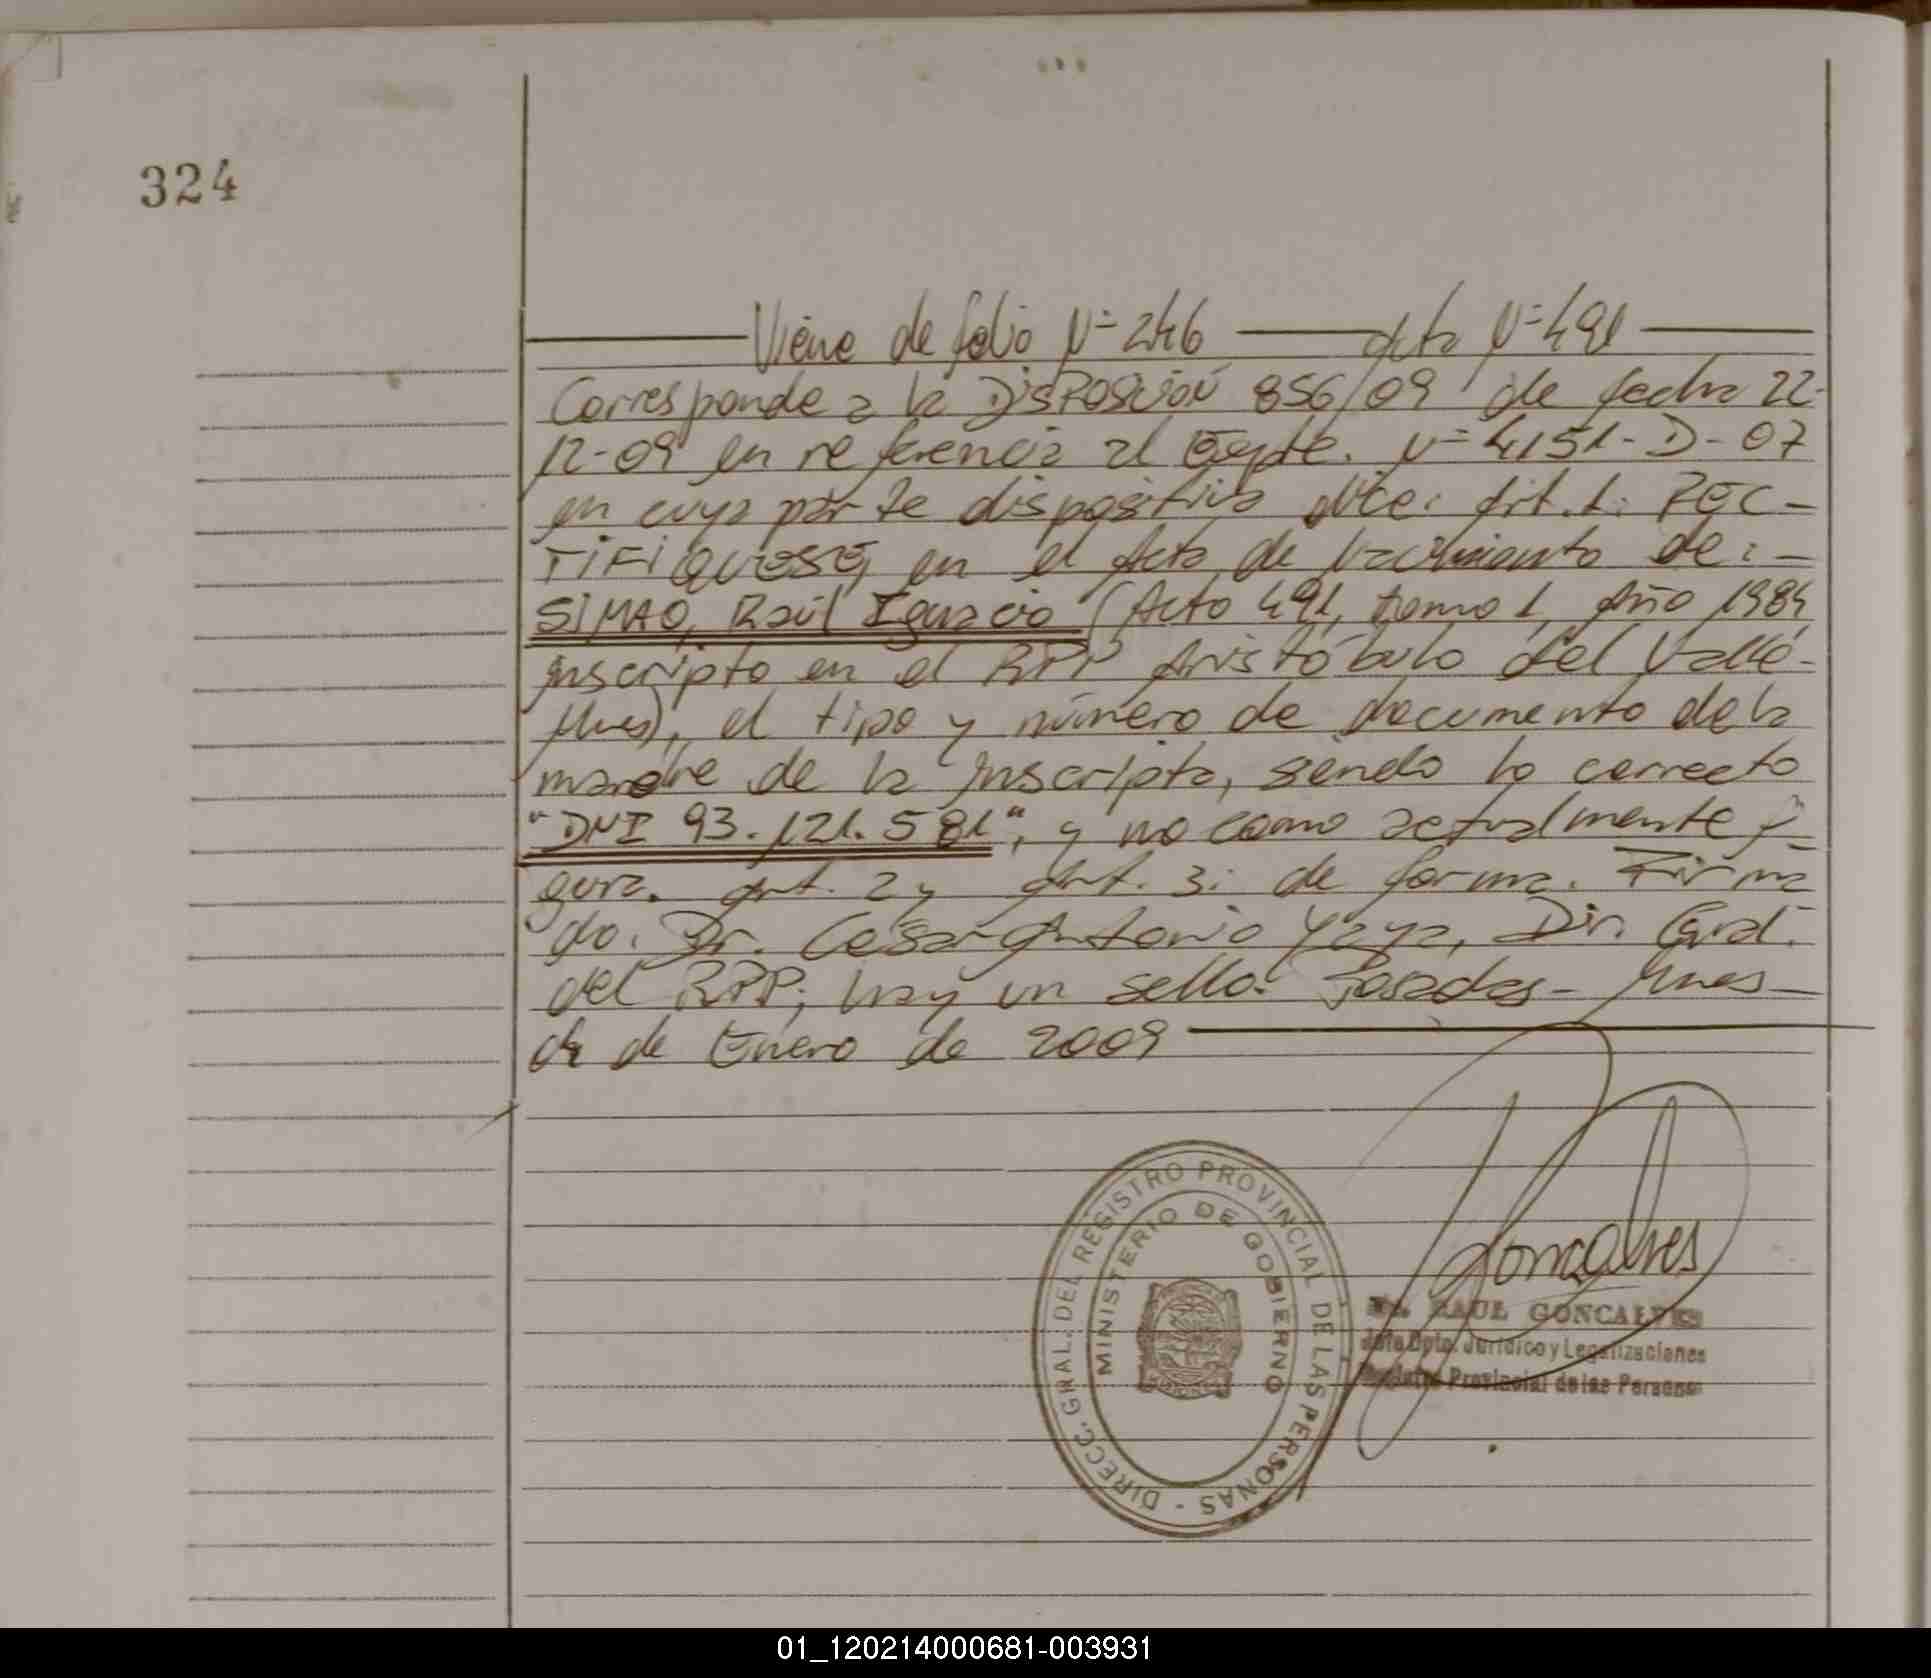 324
Viene de folio Nº 246 acta Nº 491
Corresponde a la Disposición 856/09 de fecha 22-
12-09 en referencia al Expte. Nº 4151-D-07
en cuya parte dispositiva dice: Art. 1: REC-
TIFIQUESE, en el Acta de Nacimiento de:-
SIMAO, Raúl Ignacio (Acta 491, tomo 1, Año 1984
inscripto en el RPP Aristóbulo del Valle-
Mnes), el tipo y número de documento de la
madre de la inscripta, siendo lo correcto
"DNI 93.121.581", y no como actualmente fi-
gura. Art. 2 y Art. 3: de forma. Firma
do. Dr. Cesar Antonio Yaya, Dir. Gral.
del RPP; hay un sello. Posadas- Mnes-
de Enero de 2009
DIRECC. GRAL. DEL REGISTRO PROVINCIAL DE LAS PERSONAS -
MINISTERIO DE GOBIERNO
Goncalves
RAUL GONCALVES
Jefe Dpto. Jurídico y Legalizaciones
Registro Provincial de las Personas
01_120214000681-003931